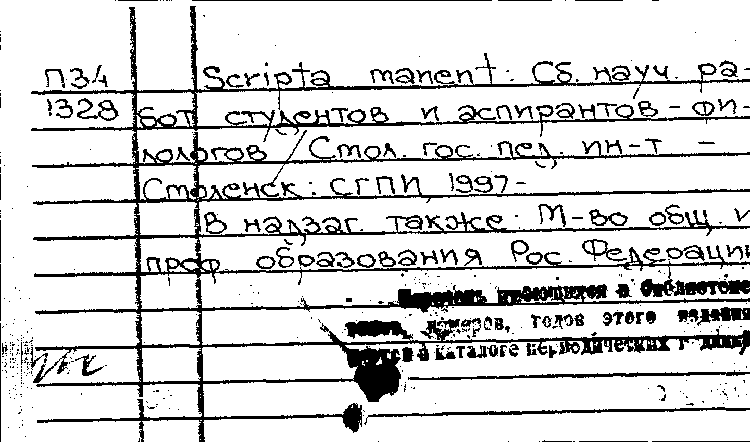 П34 Scripta manent: Сб. науч. ра-
1328 бот студентов и аспирантов-фи-
лологов / Смол. гос. пед. ин-т -
Смоленск: СГПИ, 1997-
В надзаг. также: М-во общ. и
проф. образования Рос. Федерации
Перечень имеющихся в библиотеке
томов, номеров, годов этого издания
в каталоге периодических